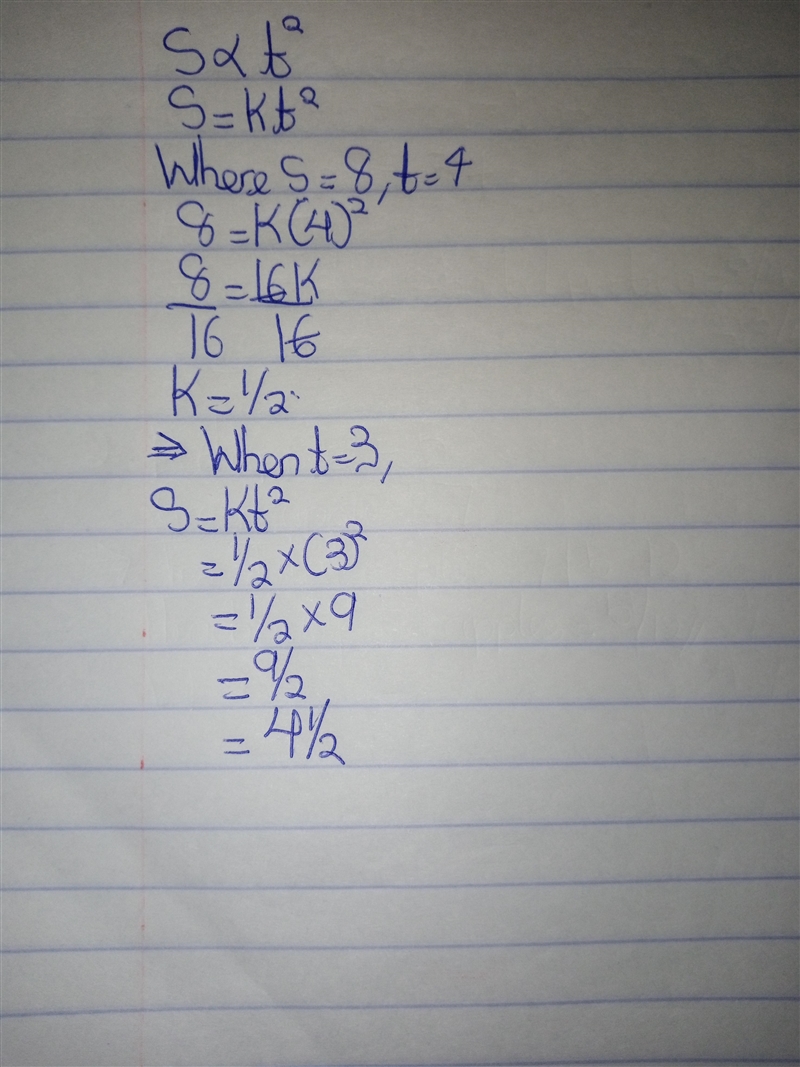 S∝t²
S=Kt²
Where S=8, t=4
8=K(4)²
8/16=16K/16
K=1/2.
⇒ When t=3,
S=Kt²
=1/2×(3)²
=1/2×9
=9/2
=4 1/2